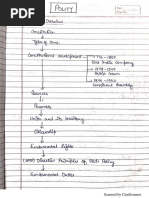 POLITY
Overview
Constitution
Types of Cons.
Constitutional development
1773-1857
East India Company
1858-1947
British Crown
Constituent Assembly
Sources
Preamble
Union and its territory
Citizenship
Fundamental Rights
Directive Principles of State Policy
Fundamental Duties
Scanned by CamScanner